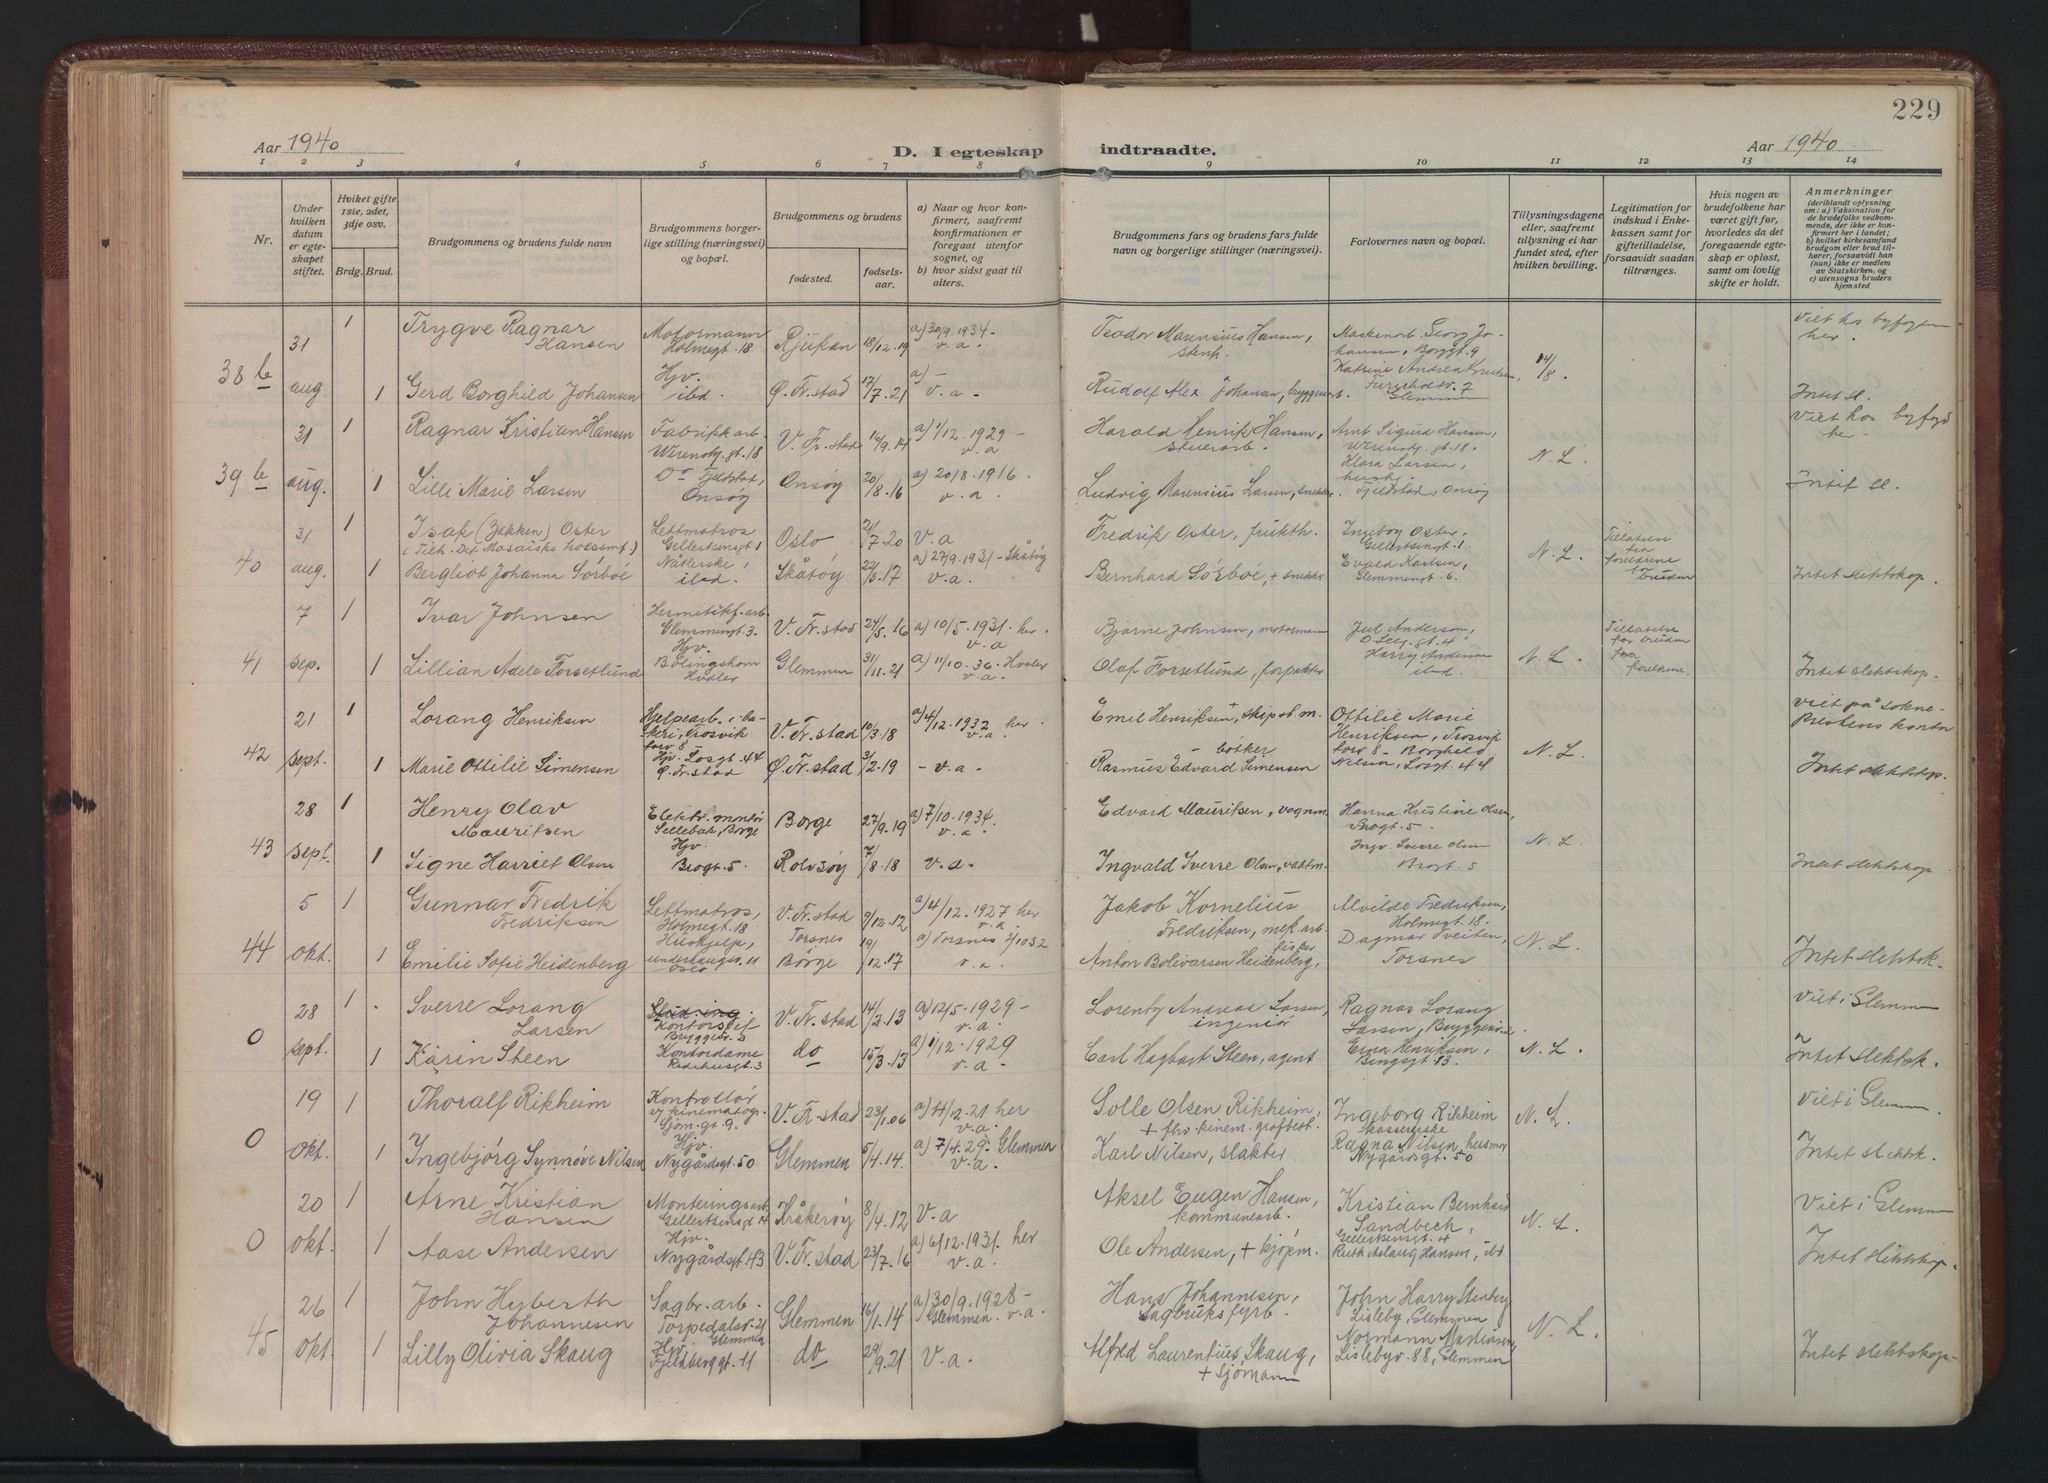 229
Aar 1940
D. I egteskap indtraadte.
Aar 1940
1 2 3 4 5 6 7 8 9 10 11 12 13 14
Nr.
Under hvilken datum er egteskapet stiftet.
Hviket gifte 1ste, 2det, 3dje osv.
Brdg. Brud.
Brudgommens og brudens fulde navn
Brudgommens borgerlige stilling (næringsvei) og bopæl.
Brudgommens og brudens
fødested.
fødselsaar.
a) Naar og hvor konfirmert, saafremt konfirmationen er foregaat utenfor sognet, og
b) hvor sidst gaat til alters.
Brudgommens fars og brudens fars fulde navn og borgerlige stillinger (næringsvei).
Forlovernes navn og bopæl.
Tillysningsdagene eller, saafremt tillysning ei har fundet sted, efter hvilken bevilling.
Legitimation for indskud i Enkekassen samt for giftetilladelse, forsaavidt saadan tiltrænges.
Hvis nogen av brudefolkene har været gift før, hvorledes da det foregaaende egteskap er opløst, samt om lovlig skifte er holdt.
Anmerkninger
(deriblandt oplysning om: a) Vaksination for de brudefolks vedkommende, der ikke er konfirmert her i landet; b) hvilket kirkesamfund brudgom eller brud tilhører, forsaavidt han (nun) ikke er medlem av Statskirken, og c) utensogns bruders hjemsted
38 b 31 aug.
1 Trygve Ragnar Hansen
Motormann Holmegt. 18
Rjukan 18/12.19
a) 30/9.1934 - v.a.
Teodor Marensius Hansen,
14/8.
Viet hos byfogen her.
1 Gerd Borghild Johansen
Hjv. ibd.
Ø. Fr.stad 17/7.21
a) - v.a-
Rudolf Alex Johansen, bryggearb.
Glemmen
Intet sl.
39 b 31 aug.
1 Ragnar Kristian Hansen
Fabrikk arb.
V. Fr.stad 16/9.14
a) 1/12.1929 - v.a
Harald Henrik Hansen,
Arnt Sigurd Hansen,
N.L.
Viet hos byfgd he.
1 Lilli Marie Larsen
Do Fjeldstad, Onsøy
Onsøy 20/8.16
a) 20/8.1916. v.a.
Ludvig Marensius Larsen, snekker
Klara Larsen, Fjeldstad, Onsøy
Intet sl.
40 31 aug.
1 Isak (Zakken) Oster
(Tilh. Det Mosaiske trossamf.)
Lettmatros Gellertsensgt 1
Oslo 21/7.20
v.a
Fredrik Oster, frukth.
Ingeborg Oster, Gellertsengt. 1.
N.L.
Tillatelse fra foreldrene for bruden
1 Bergliot Johanna Sörböe
ibd.
Skåtøy 22/3.17
a) 27/9.1931 - Skåtøy v.a.
Bernhard Sörböe, + snekker
Evald Karlsen, Glemmengt. 6.
Intet slektskap.
41 7 sep.
1 Ivar Johnsen
Hermetikf. arb. Glemmengt. 3.
V. Fr.stad 24/5.16
a) 10/5.1931. her. v.a
Bjarne Johnsen, motormann
Juel Anderson,
N.L.
Tillatelse for bruden fra foreldrene.
1 Lillian Adele Forsetlund
Hjv. Bölingshavn Hvaler
Glemmen 31/11.21
a) 11/10.36. Hvaler v.a.
Olaf Forsetlund, forpakter
Harry Anderson ibd.
Intet slektskap.
42 21 sept.
1 Lorang Henriksen
Hjelpearb. i bakeri, Trosvik torv 8
V. Fr.stad 10/3.18
a) 4/12.1932 her. v.a.
Emil Henriksen +, skipst.m.
Ottilie Marie Henriksen, Trosvik torv 8 - Borghild Nilsen, Losgt. 44
N.L.
Viet på sokneprestens kontor
1 Marie Ottilie Simensen
Hjv. Losgt. 44 Ø. Fr.stad
Ø. Fr.stad 3/2.19
- v.a-
Rasmus Edvard Simensen - bøtker
Intet slektskap.
43 28 sept.
1 Henry Olav Mauritsen
Elektr. montör Sellebak, Borge
Borge 27/9.19
a) 7/10.1934. v.a.
Edvard Mauritsen, vognm.
Hanna Kristine Olsen, Brogt. 5.
N.L.
1 Signe Harriet Olsen
Hjv. Brogt. 5.
Rolvsøy 7/8.18
v.a.
Ingvald Sverre Olsen, vaktm.
Ingv. Sverre Olsen Brogt. 5
Intet slektskap
44 5 okt.
1 Gunnar Fredrik Fredriksen
Lettmatros, Holmegt. 18
V. Fr.stad 9/12.12
a) 4/12.1927 her v.a.
Jakob Kornelius Fredriksen, mek. arb.
Alvilde Fredriksen, Holmegt. 18.
N.L.
1 Emilie Sofie Heidenberg
Hushjelp, Underhaugsv. 11 Oslo
Torsnes Borge 19/12.17
v.a.
Anton Bolivarsen Heidenberg, fisker
Dagmar Tveiten, Torsnes
Intet slektsk.
0 28 sept
1 Sverre Lorang Larsen
Stud. ing. Kontorsjef
V. Fr.stad 14/2.13
a) 12/5.1929 - v.a.
Lorentz Andreas Larsen, ingeniör
Ragnar Lorang Larsen,
N.L.
Viet i Glemmen
1 Karin Steen
Kontordame
do 15/3.13
a) 1/12.1929 v.a-
Carl Hagbart Steen, agent
Erna Henriksen,
Intet slektsk.
0 19 okt.
1 Thoralf Rikheim
Kontrollør v/ kinematogr. Sjøm.gt 9.
V. Fr.stad 23/1.06
a) 4/12.21 her v.a.
Solle Olsen Rikheim,
Ingeborg Rikheim kassererske
N.L.
Viet i Glemmen.
1 Ingebjörg Synnöve Nilsen
Hjv. Nygårdsgt. 50
Glemmen 5/4.14.
a) 7/4.29- Glemmen v.a.
Karl Nilsen, slakter
Ragna Nilsen, husmor Nygårdsgt. 50
Intet slektsk.
0 20 okt.
1 Arne Kristian Hansen
Monteringsarb. Gellertsensgt 4
Kråkerøy 8/4.12
v.a
Aksel Eugen Hansen, kommunearb.
Kristian Bernhard Sandbech, Gellertsensgt. 4
N.L.
Viet i Glemmen
1 Aase Andersen
Hjv. Nygårdsgt. 43
V. Fr.stad 23/7.16
a) 6/12.1931. her v.a.
Ole Andersen, + sjøm.
Ruth Aslaug Hansen, ibd
Intet slektskap.
45 26 okt.
1 John Hyberth Johannesen
Sagbr. arb. Torpedalsv. 21 Glemmen
Glemmen 16/1.14
a) 30/9.1928- Glemmen. v.a.
Hans Johannesen, Sagbruksfyrb.
John Harry Stenberg Lisleby, Glemmen
N.L.
1 Lilly Olivia Skaug
Hjv. Fjeldberggt. 11
do 29/9.21
v.a.
Alfred Laurentius Skaug, + sjømann
Normann Martinsen, Lislebyv. 88, Glemmen
Intet slektskap-